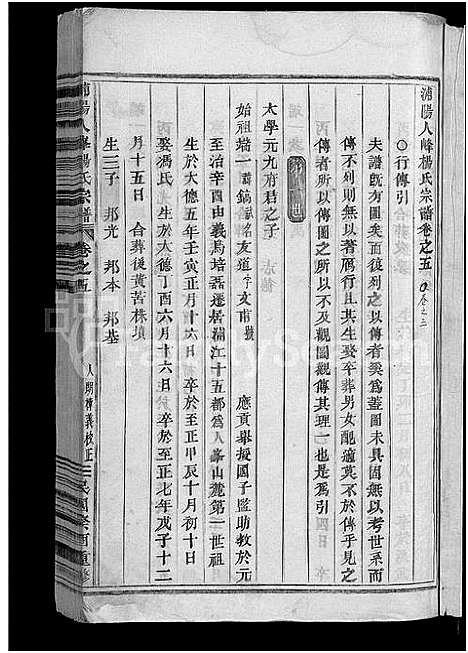 浦陽人峰楊氏宗譜卷之五
○行傳引
夫譜旣有圖矣而復列以傳者奚爲蓋圖未具固無以考世系而
傳不列則無以著鴈行且其生娶卒葬男女配適莫不於傳乎見之
傳者所以傳圖之所以不及觀圖觀傳其理一也是爲引
第一世
太學元九府君之子
始祖端一 諱鎬 友道 字文甫 號 應貢舉授國子監助教於元
至治辛酉由義烏培磊遷居浦江十五都爲人峯山麓第一世祖
生於大德五年壬寅正月十六日 卒於至正甲辰十月初十日
娶馮氏 生於大德丁酉六月十六日 卒於至正八年戊子十二
月十五日 合葬後黃苦株塤
生三子 邦光 邦本 邦基
浦陽人峰楊氏宗譜 卷之五
民國癸酉重修